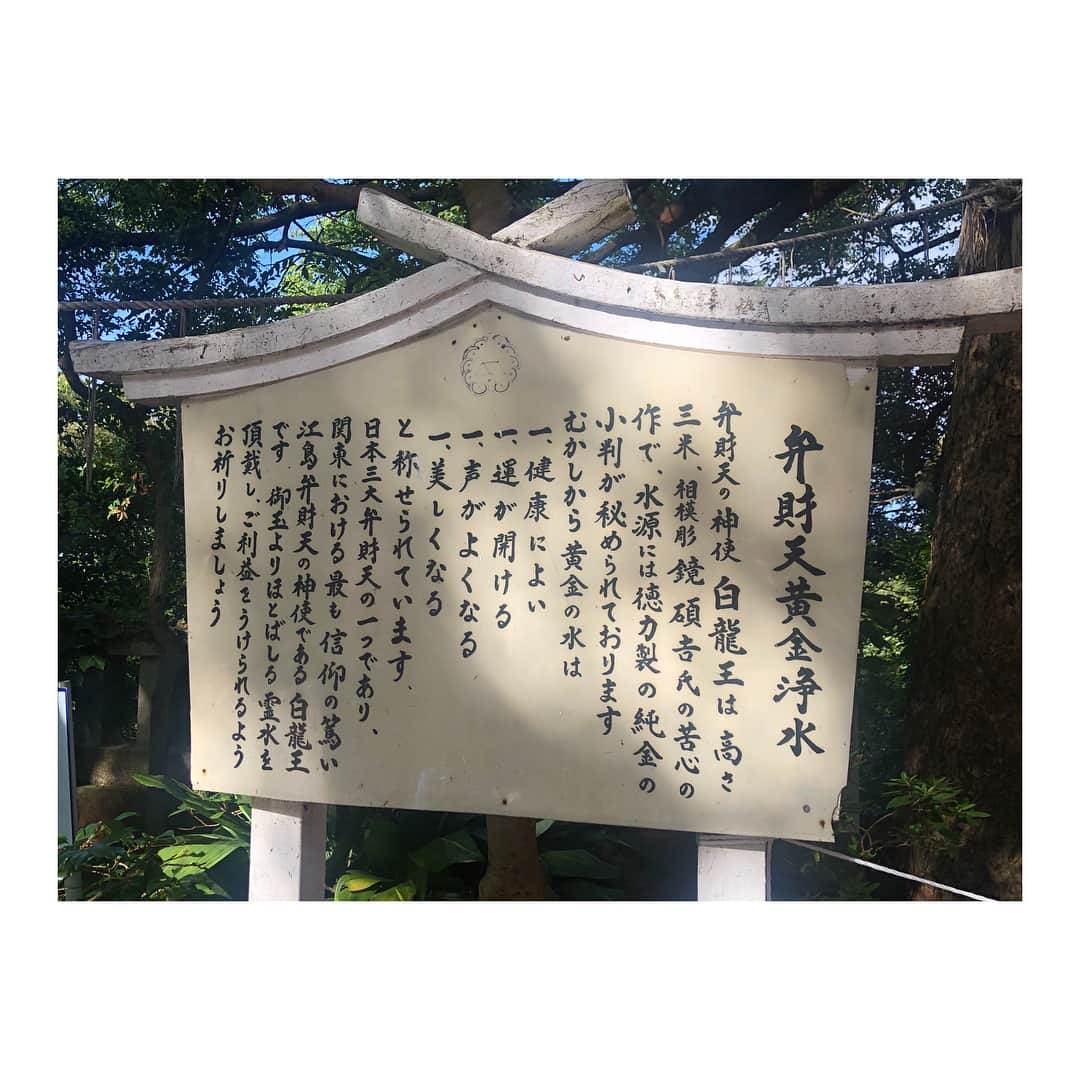 弁財天黄金浄水
弁財天の神使 白龍王は 高さ
三米、相模彫 鏡 碩吉氏の苦心の
作で、水源には徳力製の純金の
小判が秘められております
むかしから黄金の水は
一、健康によい
一、運が開ける
一、声がよくなる
一、美しくなる
と称せられています、
日本三大弁財天の一つであり、
関東における最も信仰の篤い
江島弁財天の神使である白龍王
です 御玉よりほとばしる霊水を
頂戴し、ご利益をうけられるよう
お祈りしましょう